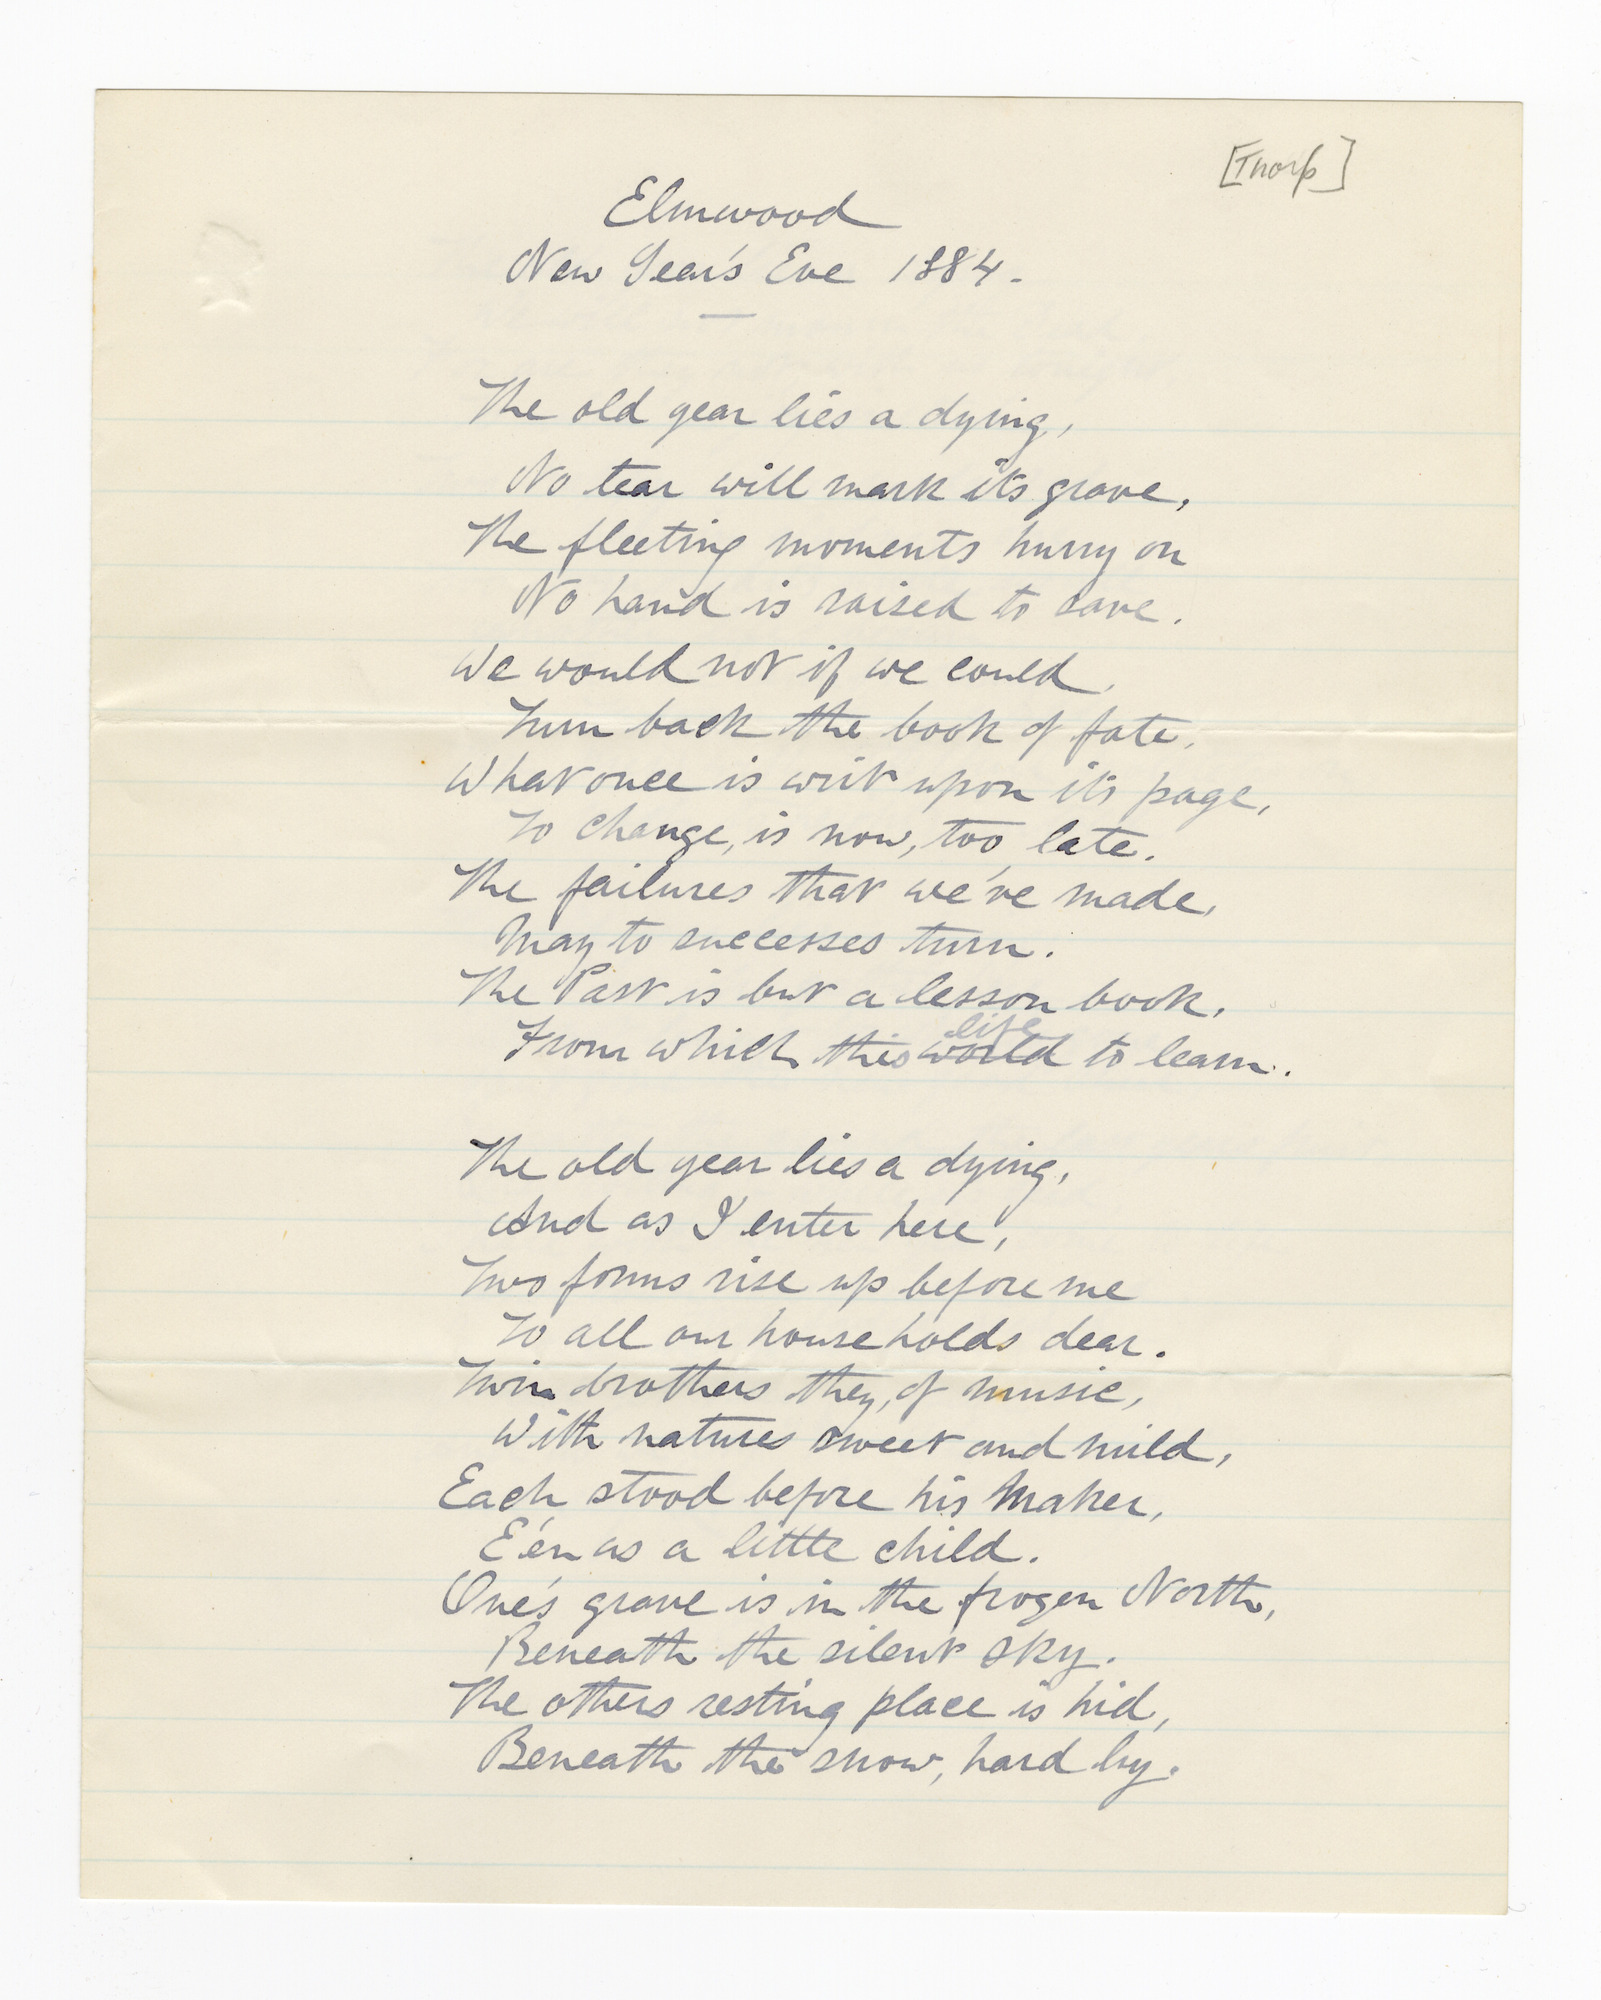 [Thorp]
Elmwood
New Year's Eve 1884.
The old year lies a dying,
No tear will mark its grave,
The fleeting moments hurry on
No hand is raised to save.
We would not if we could,
Turn back the book of fate,
What once is writ upon its page,
To change, is now, too late.
The failures that we've made,
May to successes turn.
The Past is but a lesson book,
life
From which this world to learn.
The old year lies a dying,
And as I enter here,
Two forms rise up before me
To all our households dear.
Twin brothers they, of music,
With natures sweet and mild,
Each stood before his Maker,
E'en as a little child.
One's grave is in the frozen North,
Beneath the silent sky.
The others resting place is hid,
Beneath the snow, hard by.